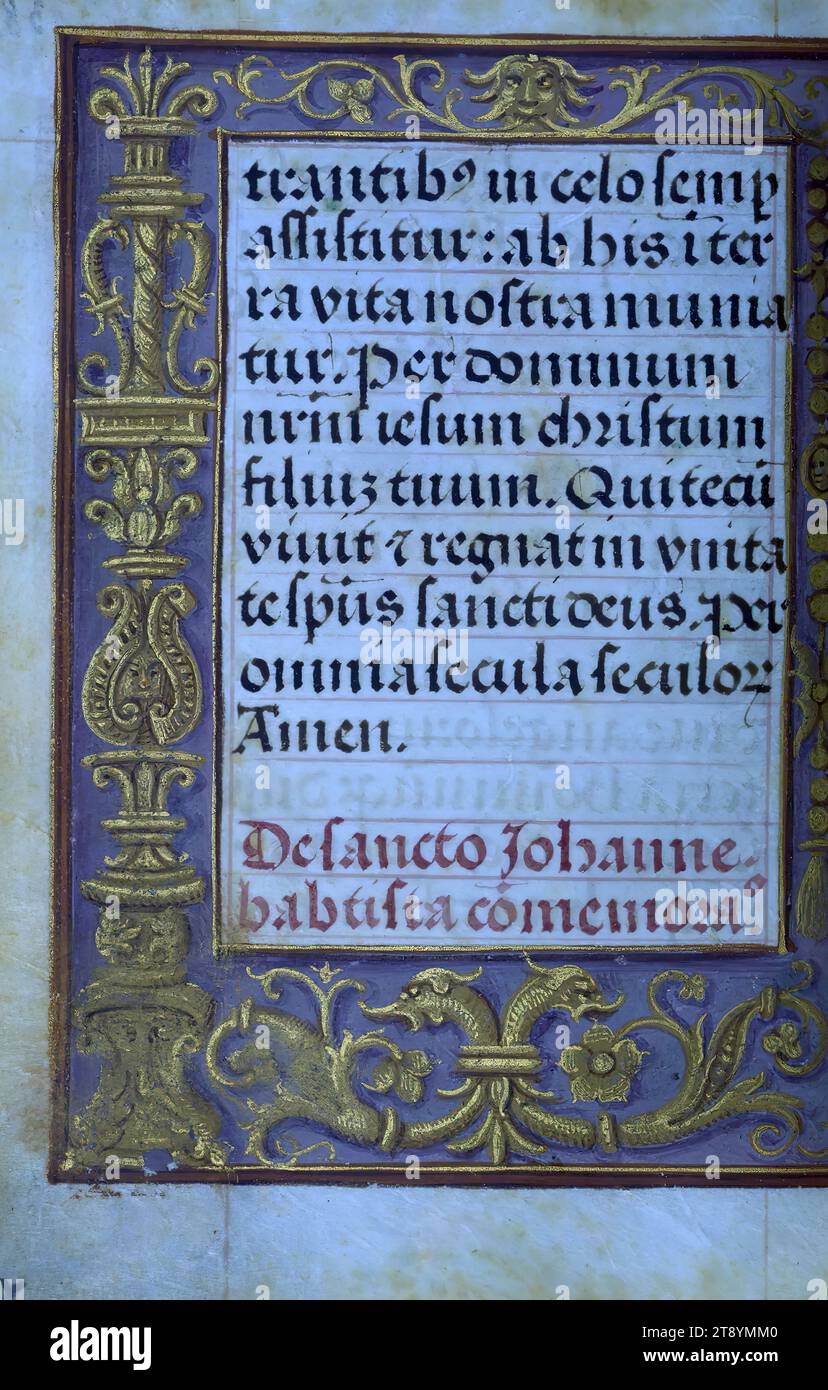 trantibꝯ in celo semp̲
assistitur: ab his ī ter
ra vita nostra munia
tur. Per dominum
nrm̄ iesum christum
filiuꝫ tuum. Qui tecū
viuit ⁊ regnat in vnita
te spūs sancti deus. Per
omnia secula seculoꝝ
Amen.
De sancto Johanne.
babtista cōmemoraº
alamy
Image ID: T8YMM0
www.alamy.com